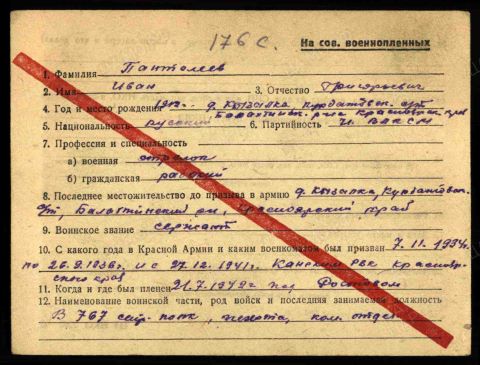 176 с.
На сов. военнопленных
1. Фамилия Пантелеев
2. Имя Иван 3. Отчество Григорьевич
4. Год и место рождения 1912 г. д. Козылка Курбатовск. с/с
Балахтинск. р-на Красноярск. края
5. Национальность русский 6. Партийность чл. ВЛКСМ
7. Профессия и специальность
а) военная стрелок
б) гражданская рабочий
8. Последнее местожительство до призыва в армию д. Козылка, Курбатовск.
с/с, Балахтинский р-н, Красноярский край
9. Воинское звание сержант
10. С какого года в Красной Армии и каким военкоматом был призван 7.11.1934г.
по 26.9.1936г. и с 27.12.1941г. Канским РВК, Краснояр-
ского края
11. Когда и где был пленен 21.7.1942г. под Ростовом
12. Наименование воинской части, род войск и последняя занимаемая должность
В 767 стр. полк, пехота, ком. отдел.